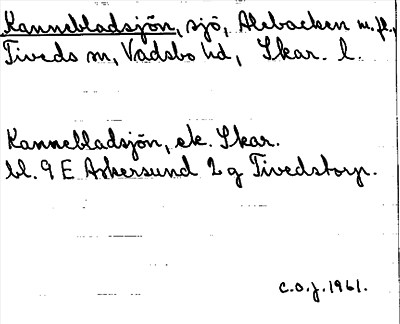 Kannebladsjön, sjö, Alebacken m.fl.,
Tiveds sn, Vadsbo hd, Skar. l.
Kannebladsjön, ek. Skar.
bl. 9 E Askersund 2 g Tivedstorp.
C.O.J. 1961.